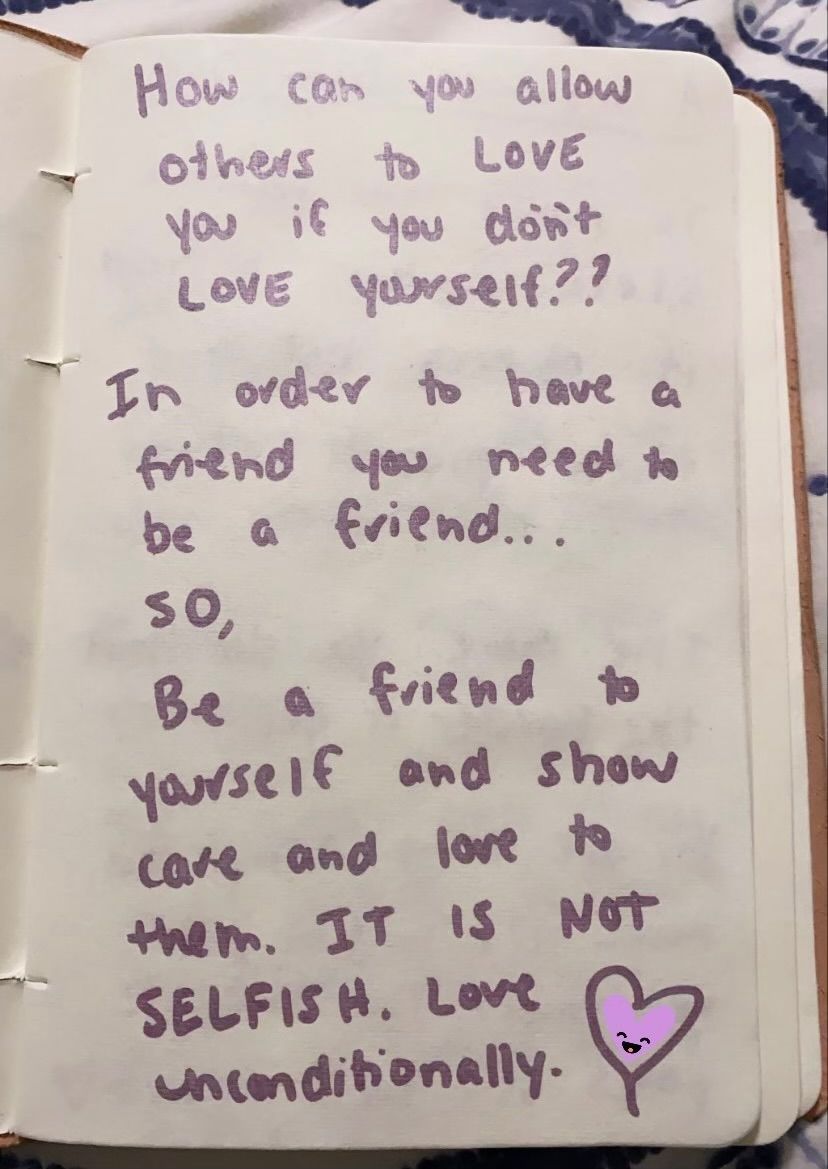 How can you allow
others to LOVE
you if you don't
LOVE yourself??
In order to have a
friend you need to
be a friend...
SO,
Be a friend to
yourself and show
care and love to
them. IT IS NOT
SELFISH. Love
unconditionally.